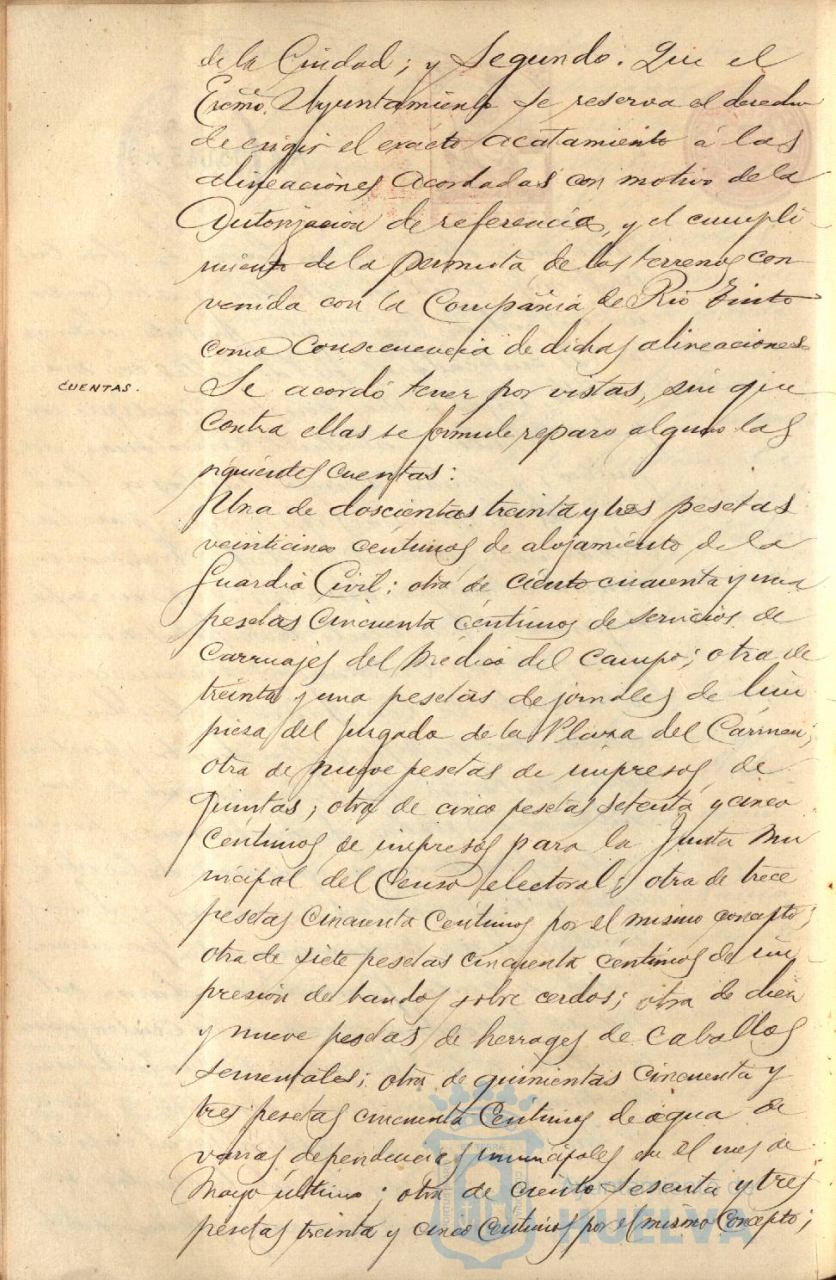 de la Ciudad; y Segundo. Que el
Excmo. Ayuntamiento se reserva el derecho
de exigir el exacto acatamiento á las
alineaciones acordadas con motivo de la
Autorizacion de referencia, y el cumpli-
miento de la permuta de los terrenos con
venida con la Compañia de Rio Tinto
como consecuencia de dichas alineaciones.
CUENTAS.
Se acordó tener por vistas, sin que
contra ellas se formule reparo alguno las
siguientes cuentas:
Una de doscientas treinta y tres pesetas
veinticinco centimos de alojamiento de la
Guardia Civil; otra de ciento cincuenta y una
pesetas cincuenta céntimos de servicios de
carruajes del Médico del Campo; otra de
treinta y una pesetas de jornales de lim
pieza del Juzgado de la Plaza del Cármen;
otra de nueve pesetas de impresos de
Quintas; otra de cinco pesetas setenta y cinco
céntimos de impresos para la Junta Mu
nicipal del Censo electoral; otra de trece
pesetas cincuenta centimos por el mismo concepto;
otra de siete pesetas cincuenta céntimos de im
presión de bandos sobre cerdos; otra de diez
y nueve pesetas de herrages de caballos
sementales; otra de quinientas cincuenta y
tres pesetas cincuenta centimos de agua de
varias dependencias municipales en el mes de
Mayo último; otra de ciento sesenta y tres
pesetas treinta y cinco centimos por el mismo concepto;
HUELVA